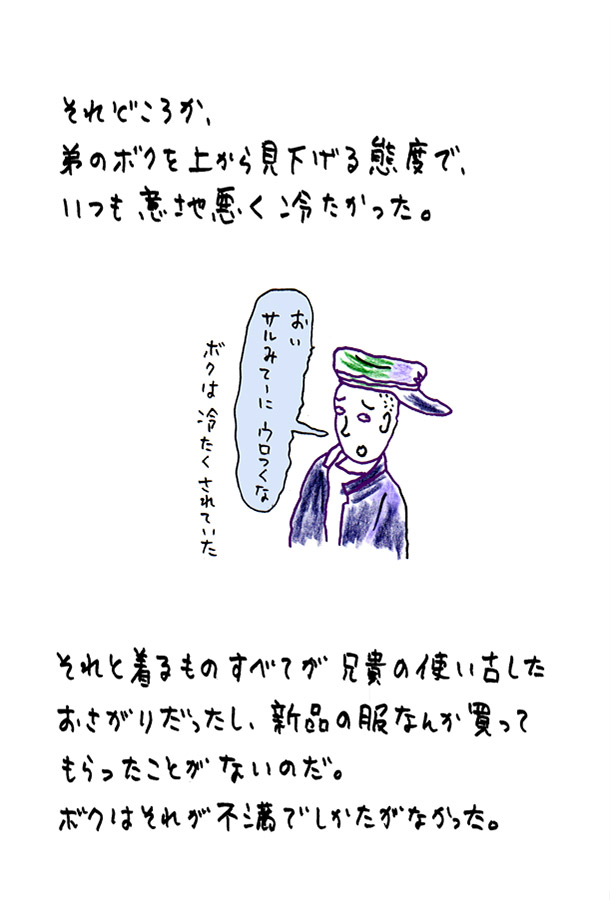 それどころか、
弟のボクを上から見下げる態度で、
いつも意地悪く冷たかった。
おい
サルみてーに ウロつくな
ボクは冷たくされていた
それと着るものすべてが 兄貴の使い古した
おさがりだったし、新品の服なんか買って
もらったことがないのだ。
ボクはそれが不満でしかたがなかった。